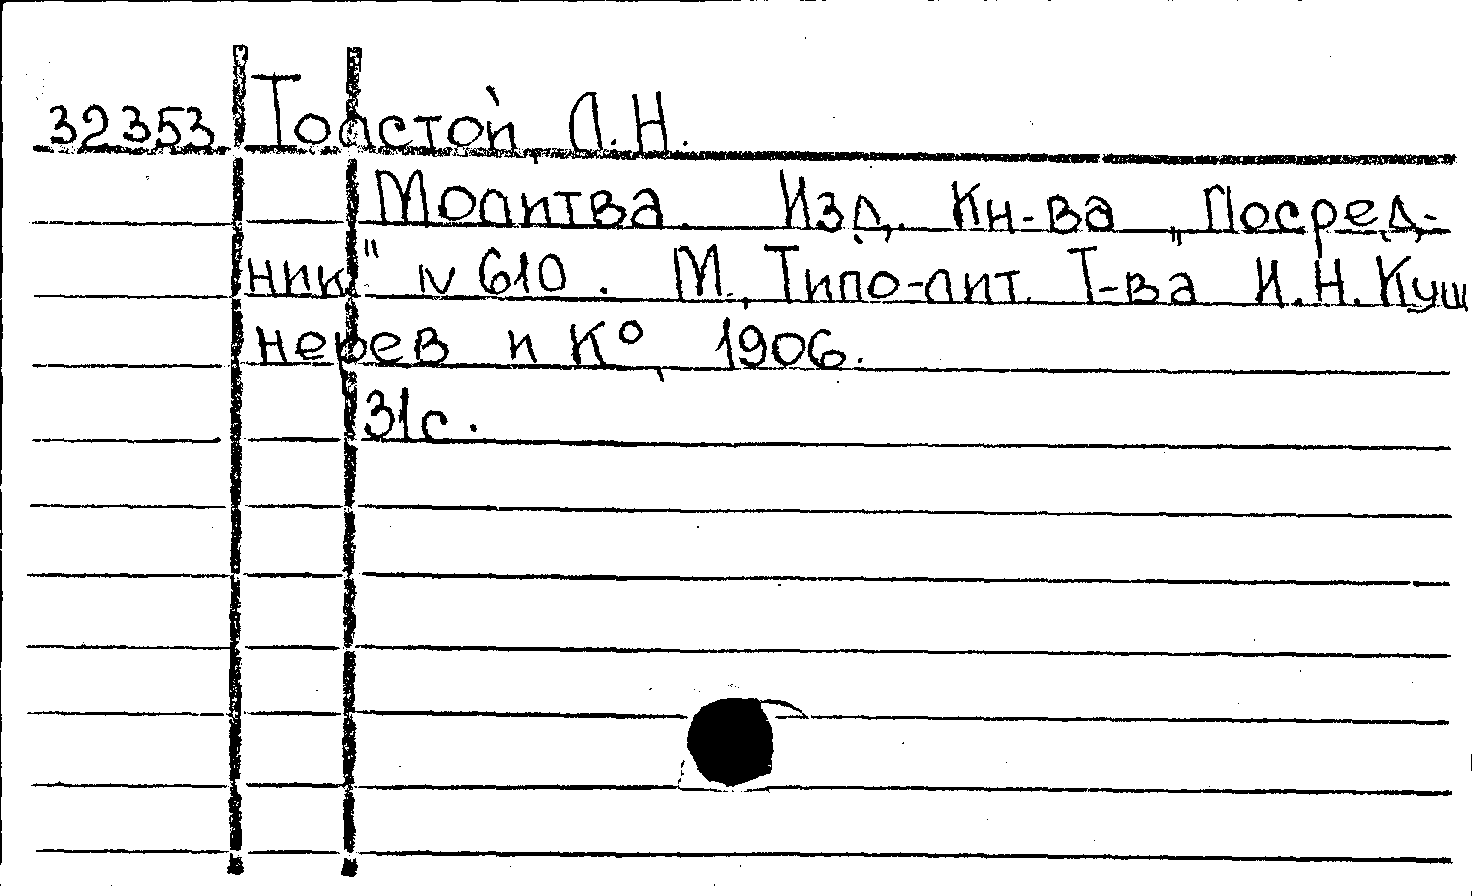 32353 Толстой, Л.Н.
Молитва. Изд. Кн-ва „Посред-
ник" N 610. М., Типо-лит. Т-ва И.Н.Куш
нерев и К°, 1906.
31с.